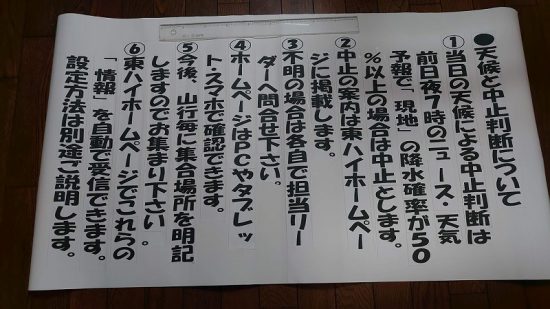 ●天候と中止判断について
①当日の天候による中止判断は
前日夜7時のニュース・天気
予報で、「現地」の降水確率が50
％以上の場合は中止とします。
②中止の案内は東ハイホームペー
ジに掲載します。
③不明の場合は各自で担当リー
ダーへ問合せ下さい。
④ホームページはPCやタブレッ
ト・スマホで確認できます。
⑤今後、山行毎に集合場所を明記
しますのでお集まり下さい。
⑥東ハイホームページでこれらの
「情報」を自動で受信できます。
設定方法は別途ご説明します。